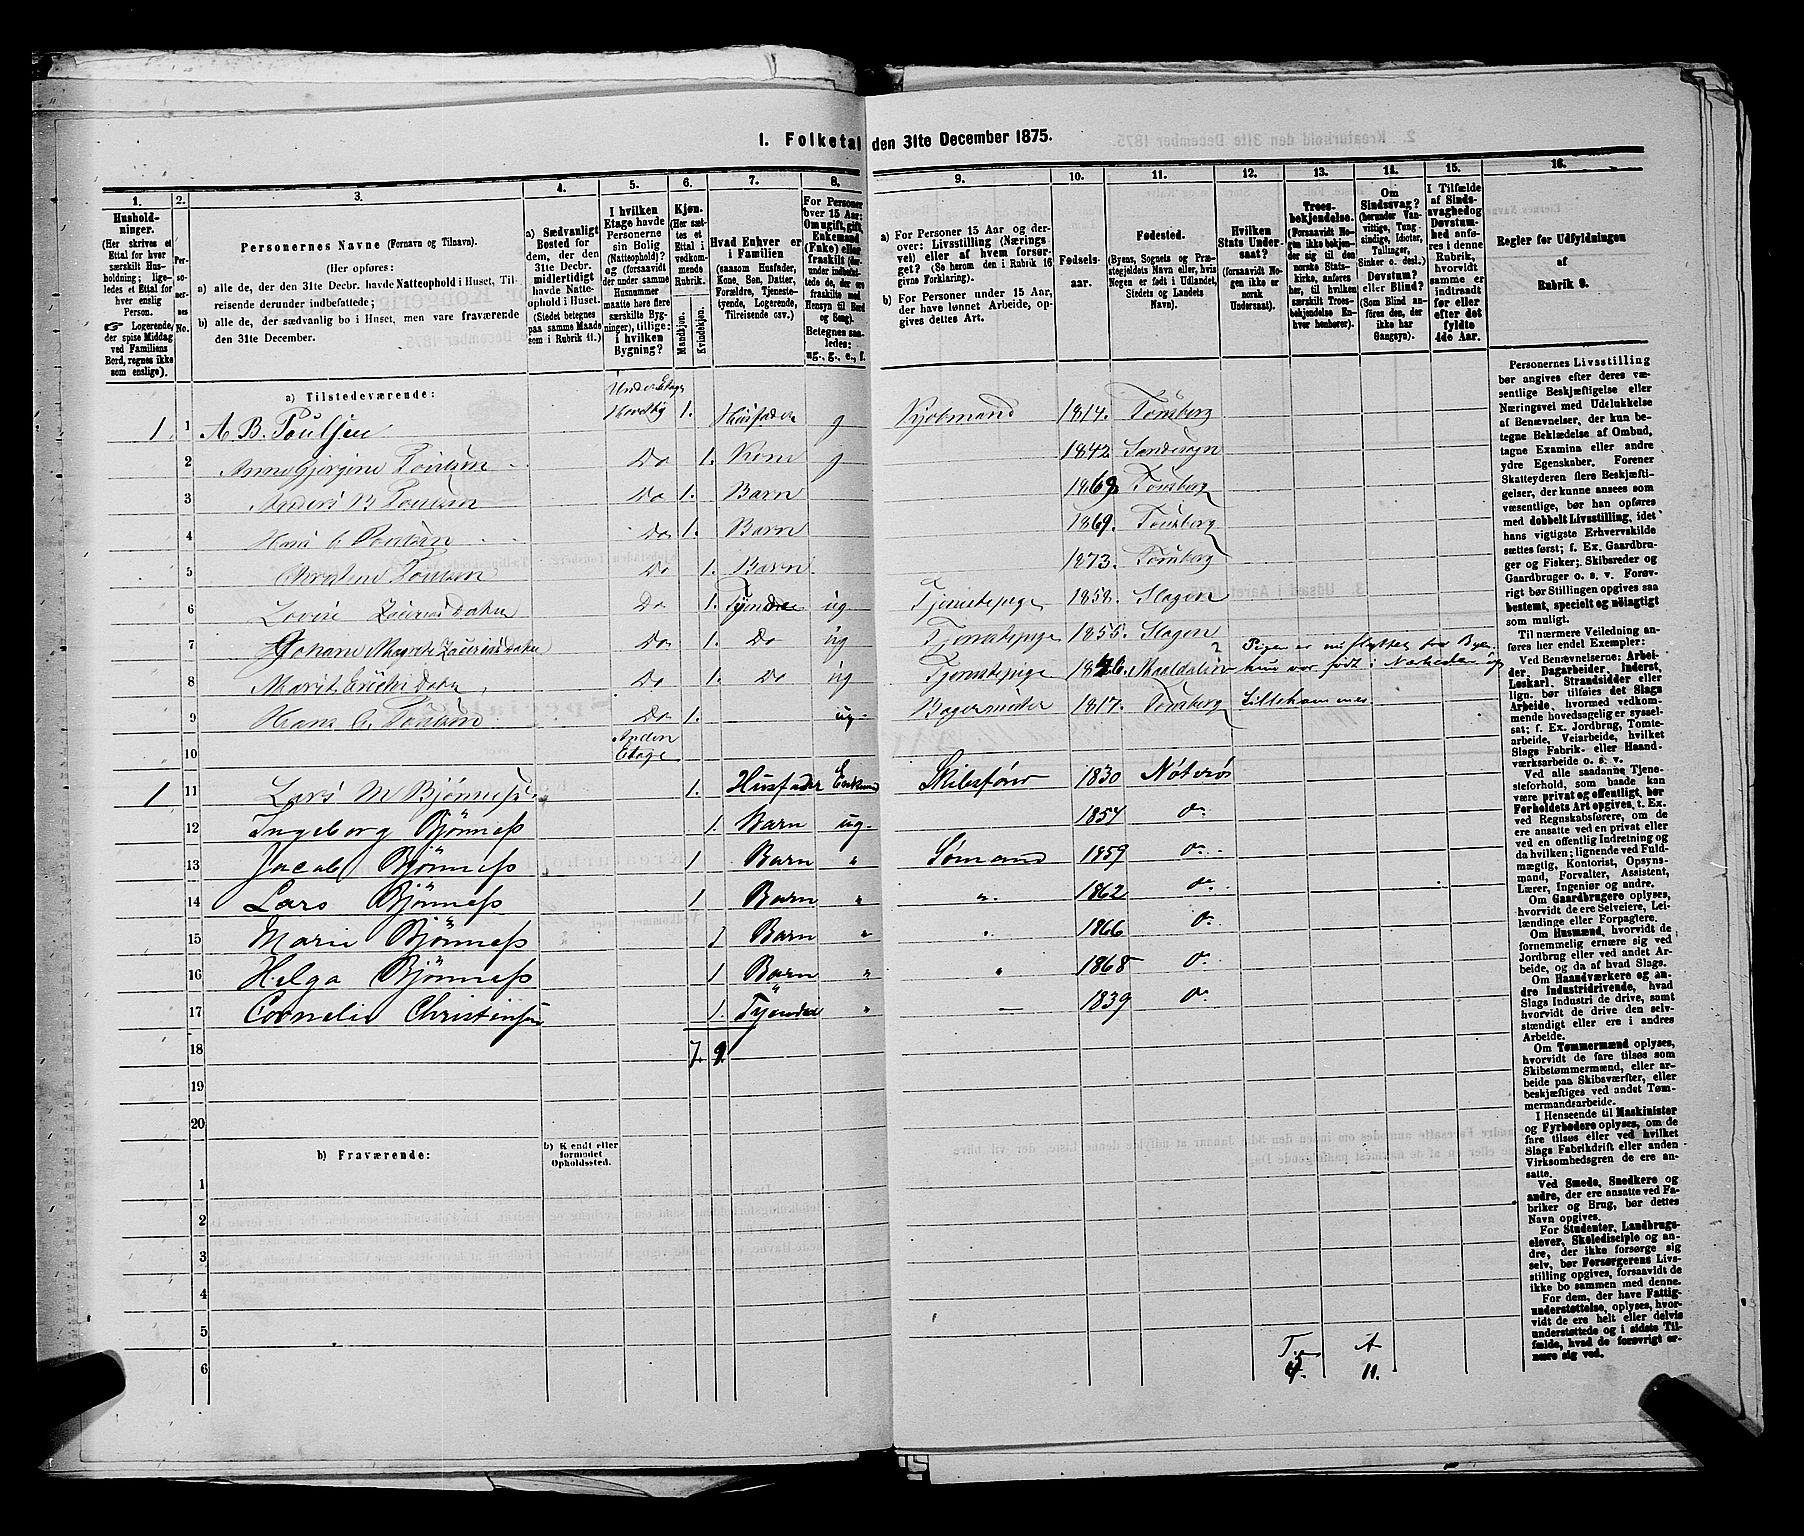 1. Folketal den 31te December 1875.
1.
Hushold-
ninger.
(Her skrives et
Ettal for hver
særskilt Hus-
holdning; lige-
ledes et Ettal
for hver
enslig
Person.
☞ Logerende,
der spise Middag
ved Familiens
Bord, regnes ikke
som enslige).
2.
Per-
so-
ner-
nes
No.
3.
Personernes Navne (Fornavn og Tilnavn).
(Her opføres:
a) alle de, der den 31te Decbr. havde Natteophold i Huset, Til-
reisende derunder indbefattede;
b) alle de, der sædvanlig bo i Huset, men vare fraværende
den 31te December.
4.
a) Sædvanligt
Bosted for
dem, der den
31te Decbr.
midlertidigt
havde Natte-
ophold i Huset.
(Stedet betegnes
paa samme Maade
som i Rubrik 11.)
5.
I hvilken
Etage havde
Personerne
sin Bolig
(Natteophold)?
og (forsaavidt
der under samme
Husnummer
maatte høre flere
særskilte Byg-
ninger), tillige:
i hvilken
Bygning?
6.
Kjøn.
(Her sæt-
tes et
Ettal i
vedkom-
mende
Rubrik.
Mandkjøn.
Kvindekjøn.
7.
Hvad Enhver er
i Familien
(saasom Husfader,
Kone, Søn, Datter,
Forældre, Tjeneste-
tyende, Logerende,
Tilreisende osv.)
8.
For Personer
over 15 Aar:
Om ugift, gift,
Enkemand
(Enke) eller
fraskilt
Betegnes saa-
ledes:
ug., g., e., f.
9.
a) For Personer 15 Aar og der-
over: Livsstilling (Nærings-
vei) eller af hvem forsør-
get? (Se herom den i Rubrik 16
givne Forklaring).
b) For Personer under 15 Aar,
der have lønnet Arbeide, op-
gives dettes Art.
10.
Fødsels-
aar.
11.
Fødested.
(Byens, Sognets og Præ-
stegjeldets Navn eller, hvis
Nogen er født i Udlandet,
Stedets og Landets
Navn).
12.
Hvilken
Stats Under-
saat?
(forsaavidt No-
gen ikke er
norsk
Undersaat).
13.
Troes-
bekjendelse.
(Forsaavidt No-
gen ikke bekjen-
der sig til den
norske Stats-
kirke, anføres her,
til hvilken
særskilt Troes-
bekjendelse En-
hver henhører).
14.
Om
Sindssvag?
(herunder Van-
vittige, Tung-
sindige, Idioter,
Tullinger,
Sinker o. desl.)
Døvstum?
eller Blind?
(Som Blind an-
føres den, der
ikke har
Gangsyn).
15.
I Tilfælde
af Sinds-
svaghed og
Døvstum-
hed anfø-
res i denne
Rubrik,
hvorvidt
samme er
indtraadt
før eller
efter det
fyldte
4de Aar.
16.
Regler for Udfyldningen
af
Rubrik 9.
a) Tilstedeværende:
1 1 A B. Poulsen 1. Husfader g Kjøbmand 1814. Tønsberg
2 Anne Gjørgine Poulsen Do 1. Kone g 1842
3 Anders B Poulsen Do 1. Barn Tønsberg
4 Hans C Poulsen Do 1. Barn 1869. Tønsberg
5 Christine Poulsen Do 1. Barn 1873. Tønsberg
6 Do 1. Tyende ug Tjenestepige 1858. Slagen
7 Johane Do 1. Do ug Tjenestepige 1855. Slagen
8 Marit Do 1. Do ug Tjenestepige Pigen er nu flyttet fra Byen
hun var født i Nærheden af
9 Hans C. Poulsen Do 1. ug. Bagermester 1817. Tønsberg Lillehammer
10 Anden
Etage
1 11 Lars M Bjønness 1. Husfader Enkemd Skibsfører 1830 Nøterø
12 Ingeborg Bjønness 1. Barn ug. 1854 do
13 Jacob Bjønness 1 Barn " Sømand 1859 do
14 Lars Bjønness 1 Barn " " 1862 do
15 Marie Bjønness 1 Barn " " 1866 do
16 Helga Bjønness 1 Barn " " 1868 do
17 Cornelie Christensen 1. Tyende " — 1839 do
18 7 9
19
20
b) Fraværende:
b) Kjendt eller
formodet
Opholdssted.
1
2
3
4
5
6
T. A
11.
Personernes Livsstilling
bør angives efter deres væ-
sentlige Beskjæftigelse eller
Næringsvei med Udelukkelse
af Benævnelser, der kun be-
tegne Beklædelse af Ombud,
tagne Examina eller andre
ydre Egenskaber. Forener
Skatteyderen flere Beskjæfti-
gelser, der kunne ansees som
væsentlige, bør han opføres
med dobbelt Livsstilling, idet
hans vigtigste Erhvervskilde
sættes først; f. Ex. Gaardbru-
ger og Fisker; Skibsreder og
Gaardbruger o. s. v. Forøv-
rigt bør Stillingen opgives saa
bestemt, specielt og nøiagtigt
som muligt.
Til nærmere Veiledning an-
føres her endel Exempler:
Ved Benævnelserne: Arbei-
der, Dagarbeider, Inderst,
Løskarl, Strandsidder eller
lign. bør tilføies det Slags
Arbeide, hvormed vedkom-
mende hovedsagelig er syssel-
sat; f. Ex. Jordbrug, Tomte-
arbeide, Veiarbeide, hvilket
Slags Fabrik- eller Haand-
værksarbeide o. s. v.
Ved alle saadanne Tjene-
steforhold, som baade kan
være privat og offentligt, bør
Forholdets Art opgives, t. Ex.
ved Regnskabsførere, om de
ere ansatte ved en privat eller
ved en offentlig Indretning og
da hvilken; lignende ved Fuld-
mægtig, Kontorist, Opsyns-
mand, Forvalter, Assistent,
Lærer, Ingeniør og andre.
Om Gaardbrugere oplyses,
hvorvidt de ere Selveiere, Lei-
lændinge eller Forpagtere.
Om Husmænd, hvorvidt de
fornemmelig ernære sig ved
Jordbrug eller ved andet Ar-
beide, og da af hvad Slags.
Om Haandværkere og an-
dre Industridrivende, hvad
Slags Industri de drive, samt
hvorvidt de drive den selv-
stændigt eller ere i andres
Arbeide.
Om Tømmermænd oplyses,
hvorvidt de fare tilsøs som
Skibstømmermænd, eller ar-
beide paa Skibsværfter, eller
beskjæftiges ved andet Tøm-
mermandsarbeide.
I Henseende til Maskinister
og Fyrbødere oplyses, om de
fare tilsøs eller ved hvilket
Slags Fabrikdrift eller anden
Virksomhedsgren de ere an-
satte.
Ved Smede, Snedkere og
andre, der ere ansatte ved Fa-
briker og Brug, bør dettes
Navn opgives.
For Studenter, Landbrugs-
elever, Skoledisciple og an-
dre, der ikke forsørge sig
selv, bør Forsørgerens Livs-
stilling opgives, forsaavidt de
ikke bo sammen med denne.
For dem, der have Fattig-
understøttelse, oplyses, hvor-
vidt de ere helt eller delvis
understøttede og i sidste Til-
fælde, hvad de forøvrigt er-
nære sig ved.